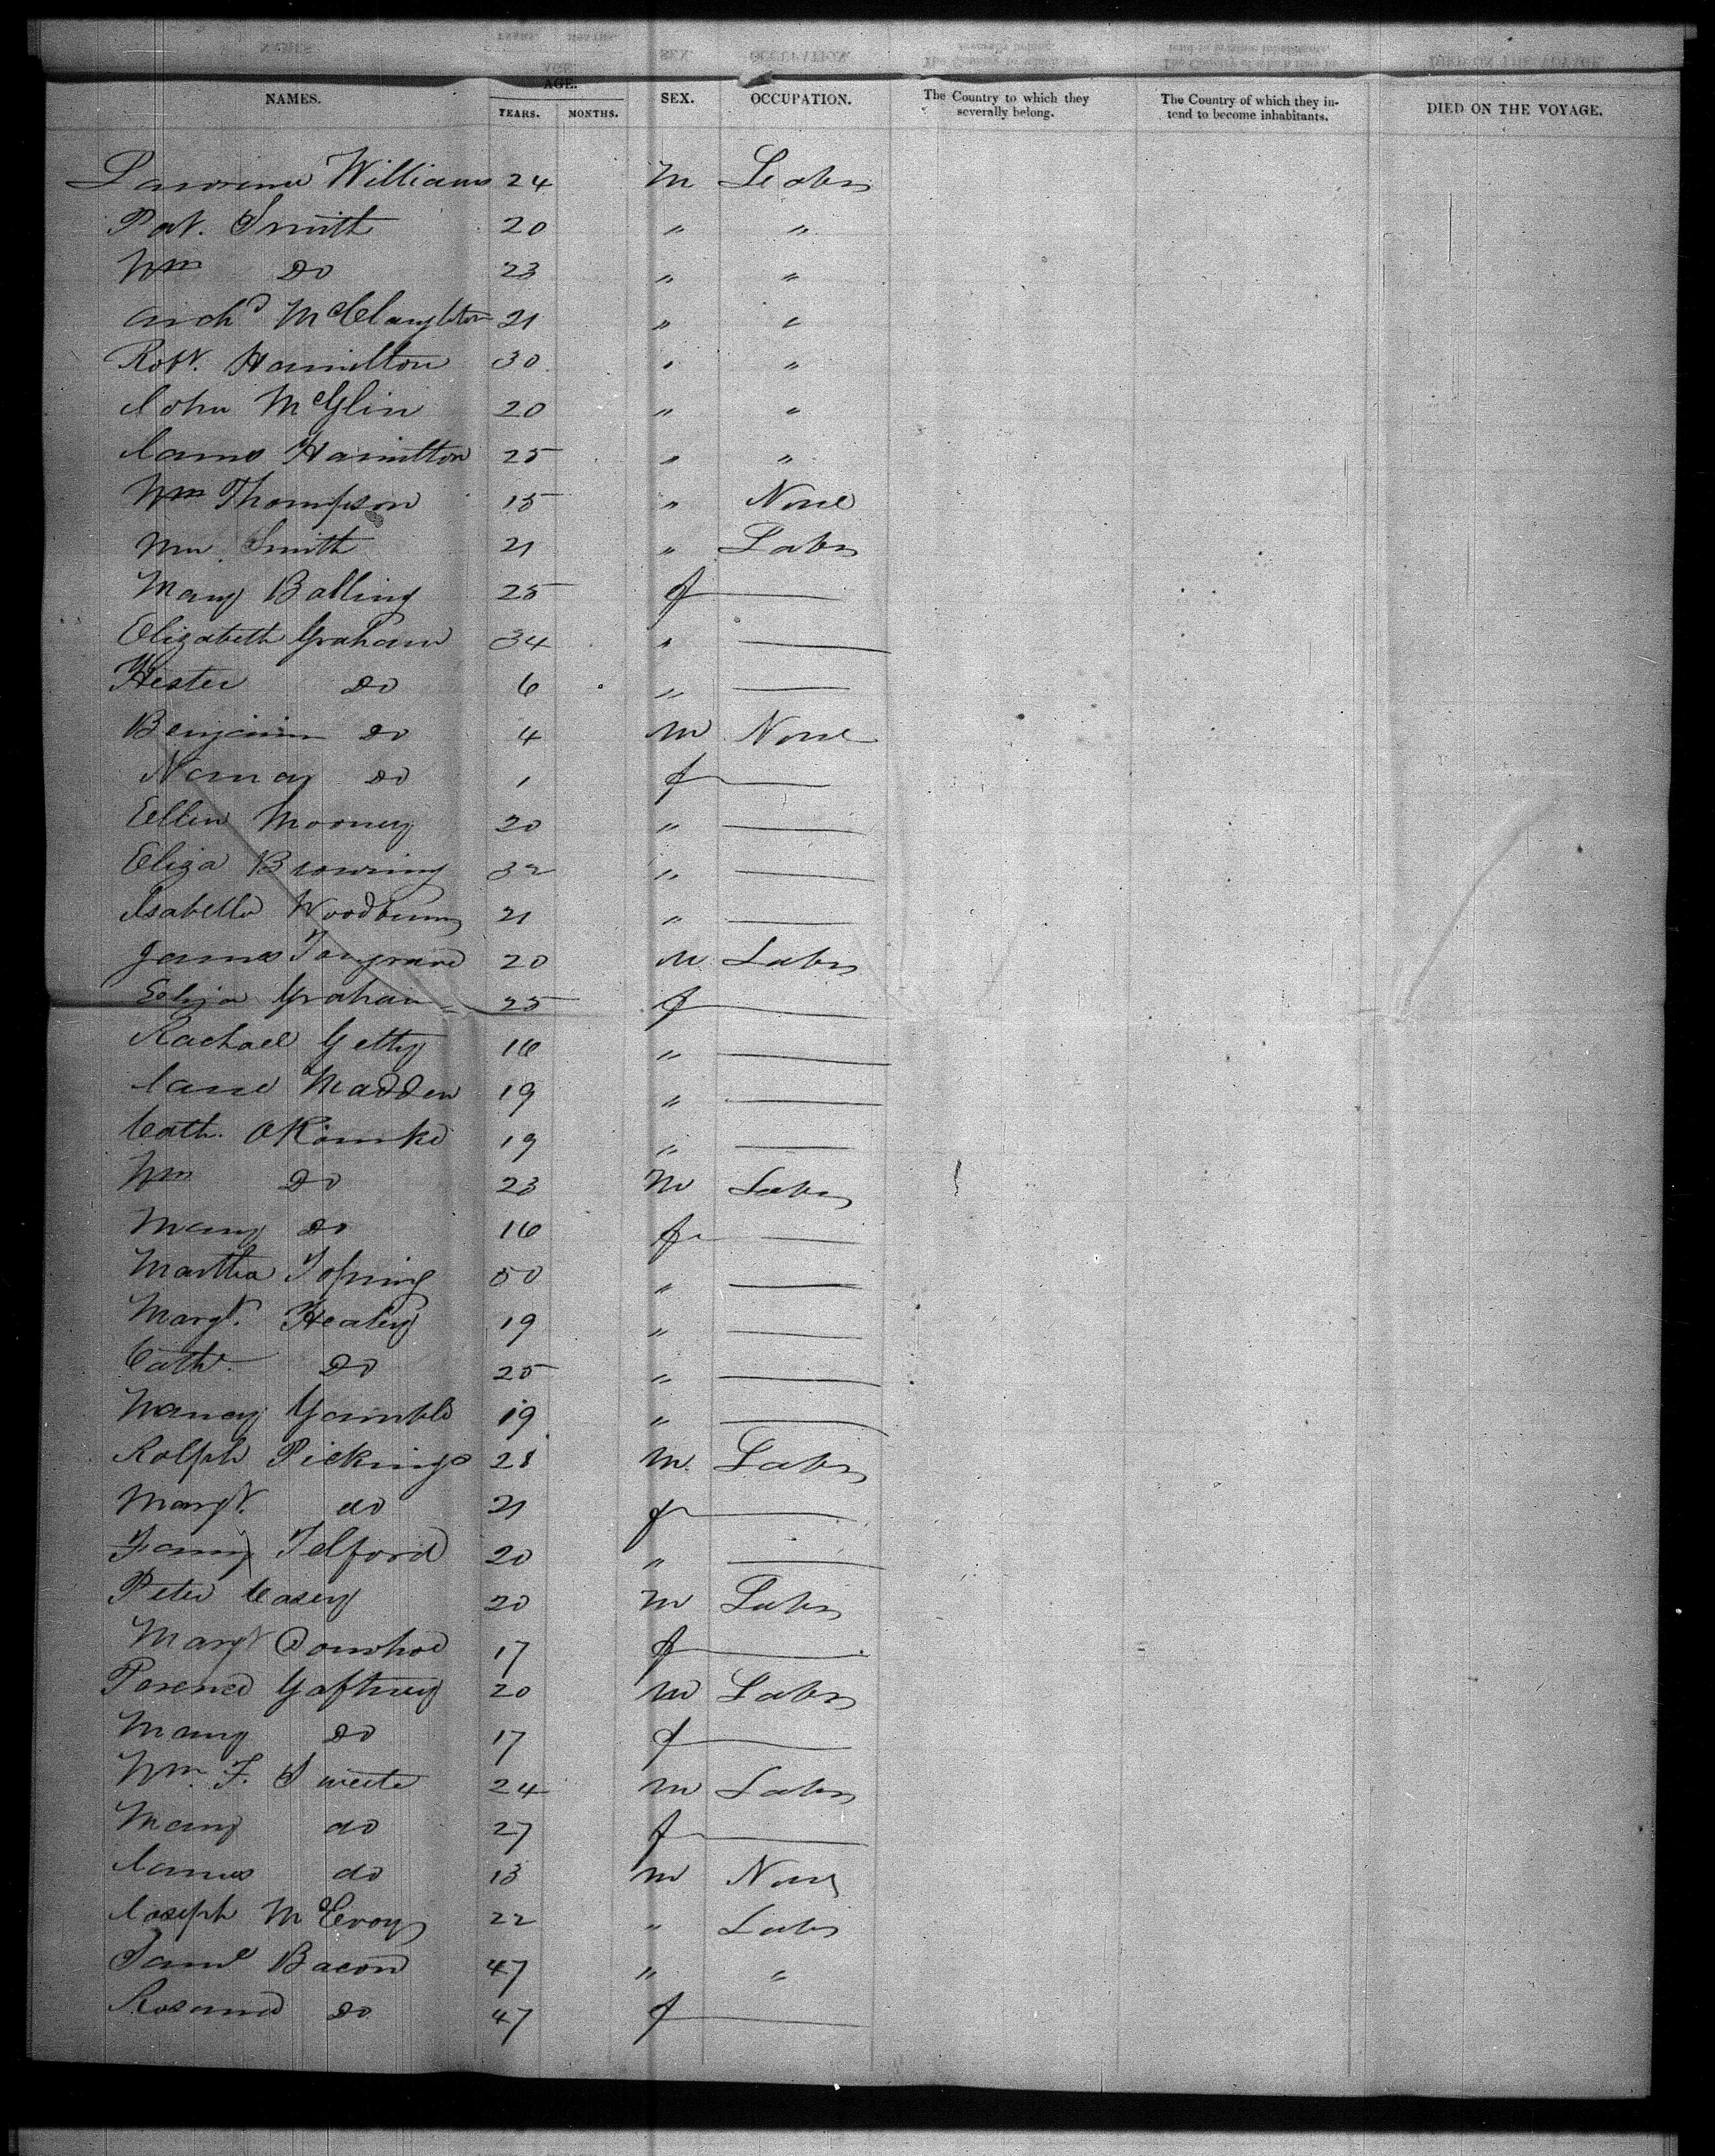 NAMES. AGE. YEARS. MONTHS. SEX. OCCUPATION. The Country to which they severally belong. The Country of which they intend to become inhabitants. DIED ON THE VOYAGE.
Williams 24 M Labr
Pat. Smith 20 " "
Wm Do 23 " "
Archd McClaughton 21 " "
Robt. Hamilton 30 " "
John McGlin 20 " "
James Hamilton 25 " "
Wm Thompson 15 " None
Wm Smith 21 " Labr
Mary Balling 25 f
Elizabeth Graham 34 "
Hester Do 6 "
Benjamin Do 4 M None
Nancy Do 1 f
Ellen Mooney 20 "
Eliza Browning 32 "
Isabella Woodburn 21 "
James 20 M Labr
Eliza Graham 25 f
Rachael Getty 16 "
Jane Madden 19 "
Cath. 19 "
Wm Do 23 M Labr
Mary Do 16 f
Martha Toping 50 "
Margt. Healey 19 "
Cath. Do 25 "
Nancy Gamble 19 "
Ralph Pickings 28 M Labr
Margt. do 21 f
Fanny Telford 20 "
Peter Casey 20 M Labr
Margt Donohoe 17 f
Gaftney 20 M Labr
Mary Do 17 f
Wm F. Sweete 24 M Labr
Mary do 27 f
James do 13 M None
Joseph McEvoy 22 " Labr
Saml Bacon 47 " "
Rosanna Do 47 f